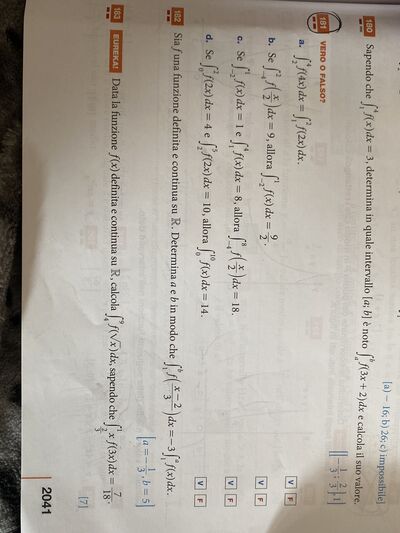 [a) − 16; b) 26; c) impossibile]
180 Sapendo che ∫₁⁴ f(x) dx = 3, determina in quale intervallo [a; b] è noto ∫ₐᵇ f(3x + 2) dx e calcola il suo valore.
[[−1/3; 2/3]; 1]
181 VERO O FALSO?
a. ∫₂⁴ f(4x) dx = ∫₁² f(2x) dx. V F
b. Se ∫₋₄² f(x/2) dx = 9, allora ∫₋₂¹ f(x) dx = 9/2. V F
c. Se ∫₋₂¹ f(x) dx = 1 e ∫₁⁴ f(x) dx = 8, allora ∫₋₄⁸ f(x/2) dx = 18. V F
d. Se ∫₀² f(2x) dx = 4 e ∫₂⁵ f(2x) dx = 10, allora ∫₀¹⁰ f(x) dx = 14. V F
182 Sia f una funzione definita e continua su ℝ. Determina a e b in modo che ∫₁ᵇ f((x − 2)/3) dx = −3 ∫₁ᵃ f(x) dx.
[a = −1/3, b = 5]
183 EUREKA! Data la funzione f(x) definita e continua su ℝ, calcola ∫₄⁹ f(√x) dx, sapendo che ∫ x f(3x) dx = 7/18.
[7]
2041